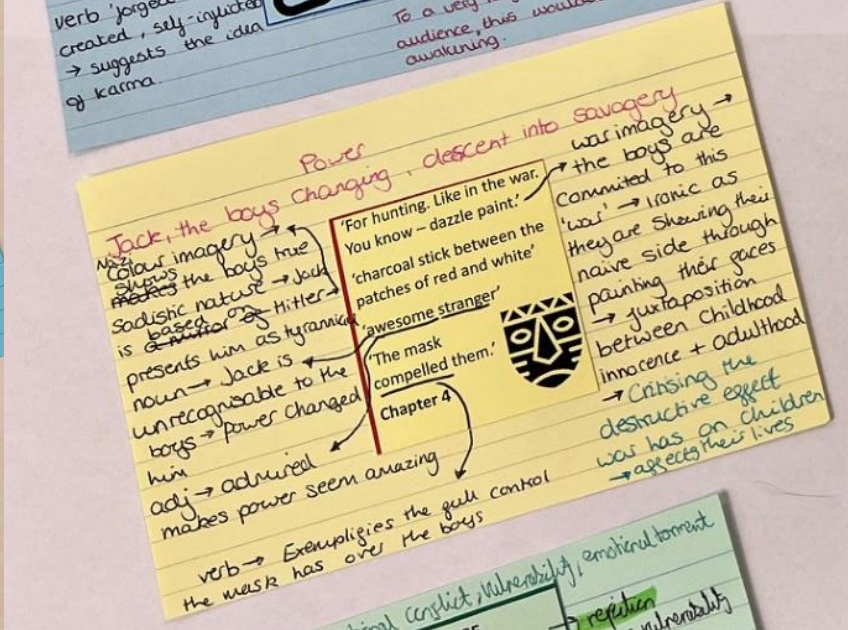 verb 'forged
created, self-inflicted
→ suggests the idea
of karma.
To a very
audience, this would
awakening.
Power
Jack, the boys changing, descent into savagery
Nazi
Colour imagery →
shows
makes the boys true
sadistic nature → Jack
based on
is a mirror of Hitler →
presents him as tyrannical
noun → Jack is
unrecognisable to the
boys → power changed
him
adj → admired
makes power seem amazing
verb → Exemplifies the full control
the mask has over the boys
'For hunting. Like in the war.
You know – dazzle paint.'
'charcoal stick between the
patches of red and white'
'awesome stranger'
'The mask
compelled them.'
Chapter 4
war imagery →
the boys are
commited to this
'war' → ironic as
they are showing their
naive side through
painting their faces
→ juxtaposition
between childhood
innocence + adulthood
→ Critising the
destructive effect
war has on children
→ affects their lives
conflict, vulnerability, emotional torment
→ rejection
vulnerability